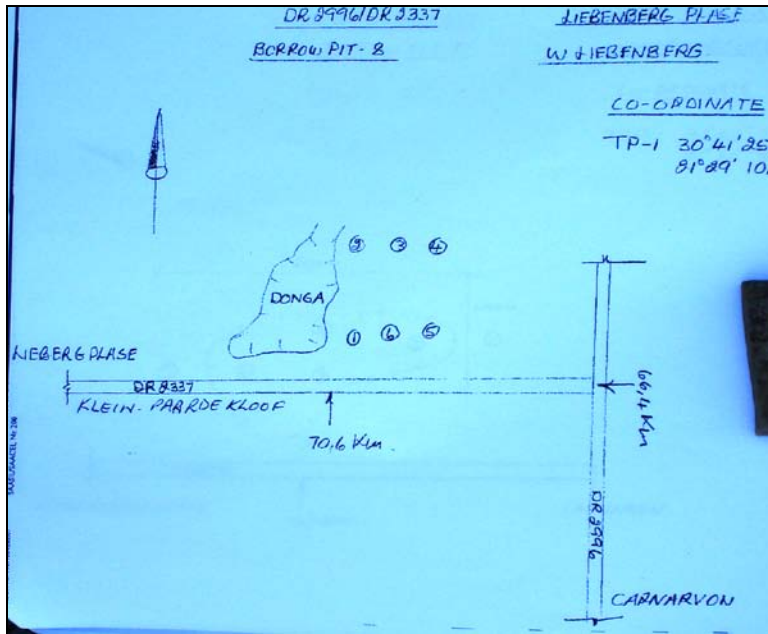 DR 2996/DR 2337
LIEBENBERG PLASE
BORROW PIT - 8
W LIEBENBERG
CO-ORDINATE
TP-1 30°41'25
21°29' 10
② ③ ④
DONGA
① ⑥ ⑤
LIEBERG PLASE
DR 2337
KLEIN-PAARDE KLOOF
70,6 Km
66,4 Km
DR 2996
CARNARVON